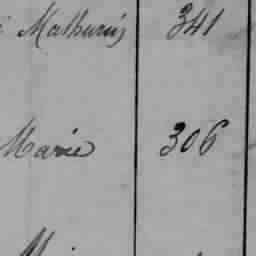 Mathurin 341
Marie 306